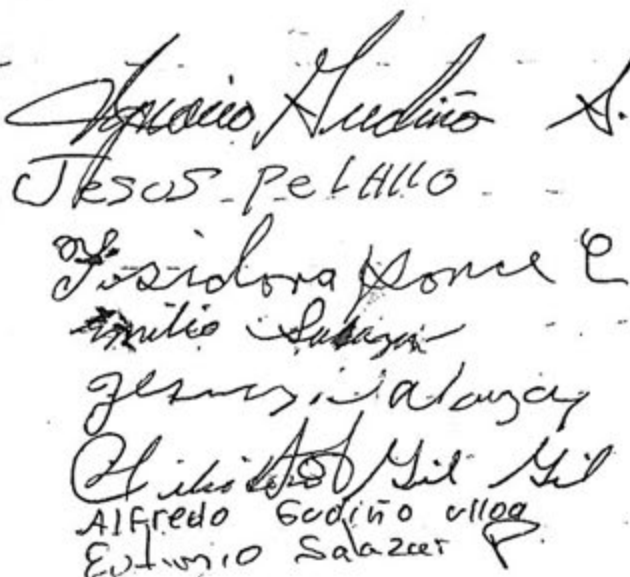 Ignacio Gudiño S.
Jesus
Isidora Ponce C
Emilio Salazar
Jesus Salazar
Gil Gil
Alfredo Gudiño Ulloa
Eutimio Salazar P.